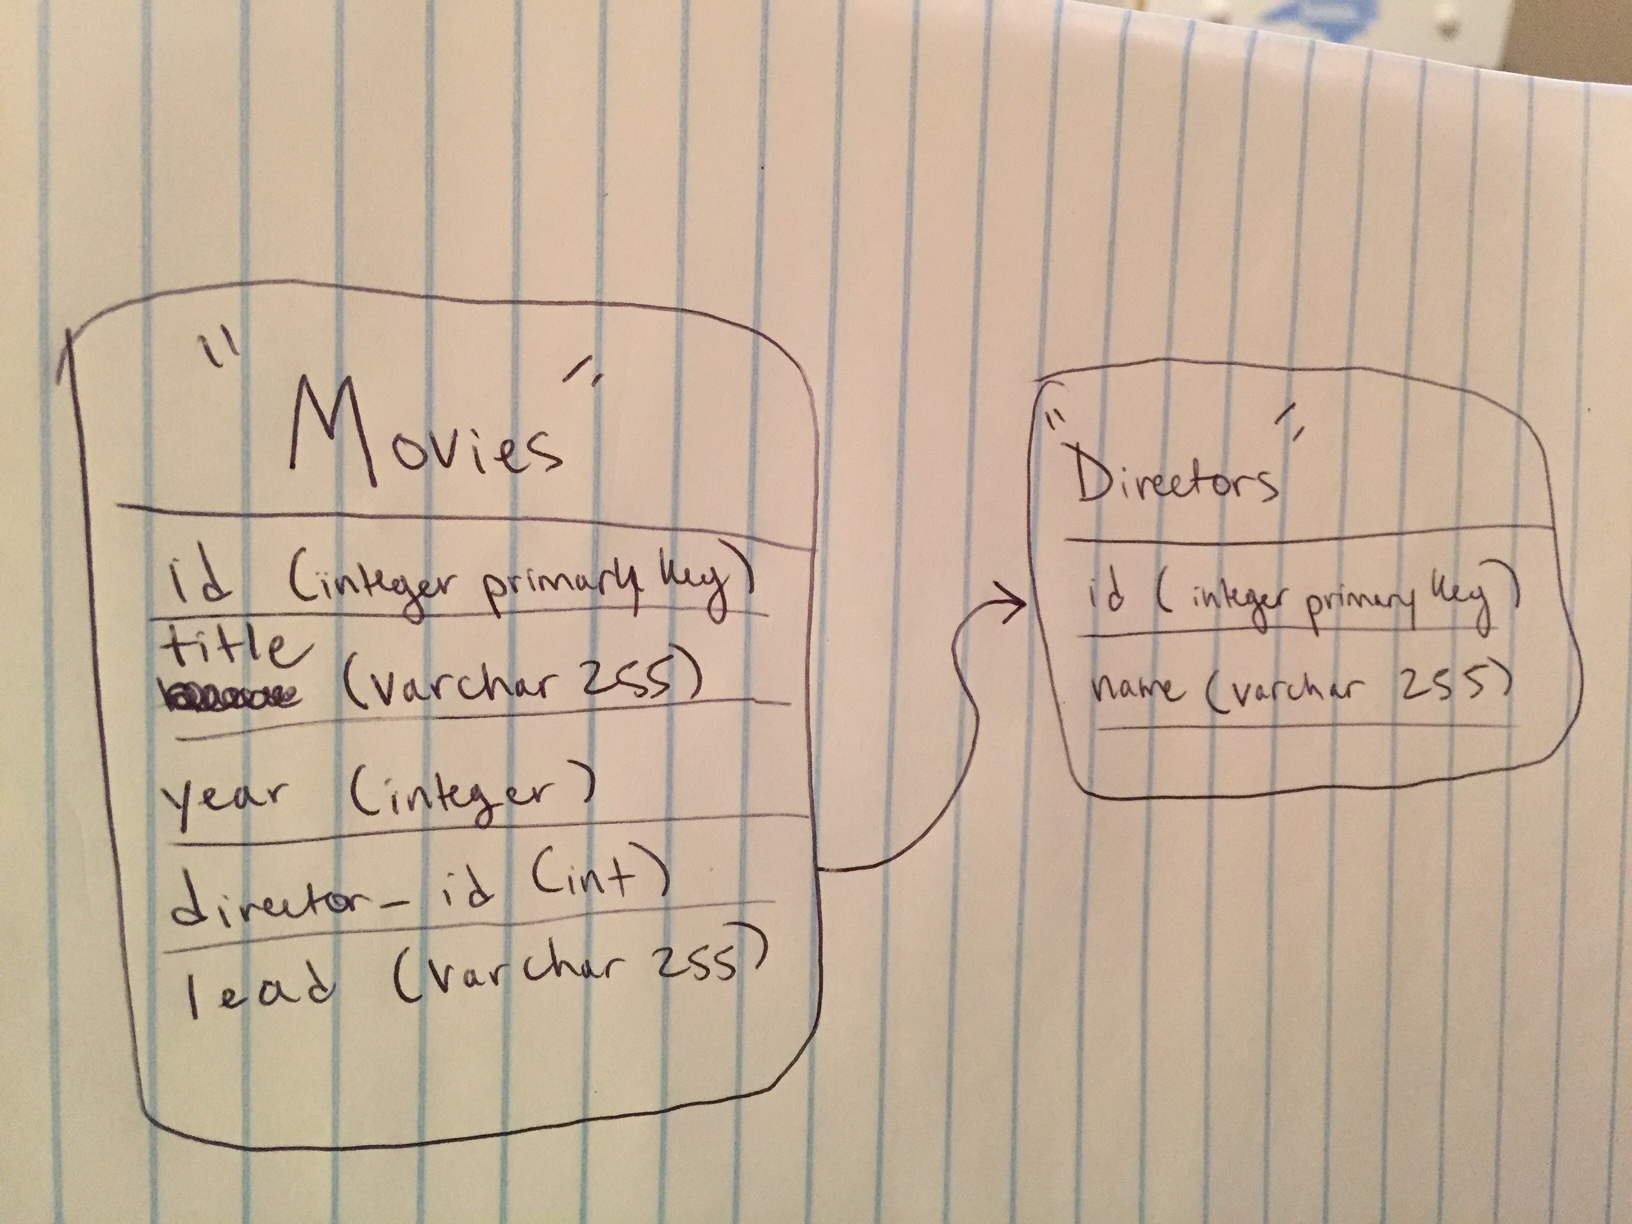 "Movies"
id (integer primary key)
title
(varchar 255)
year (integer)
director_id (int)
lead (varchar 255)
"Directors"
id (integer primary key)
name (varchar 255)